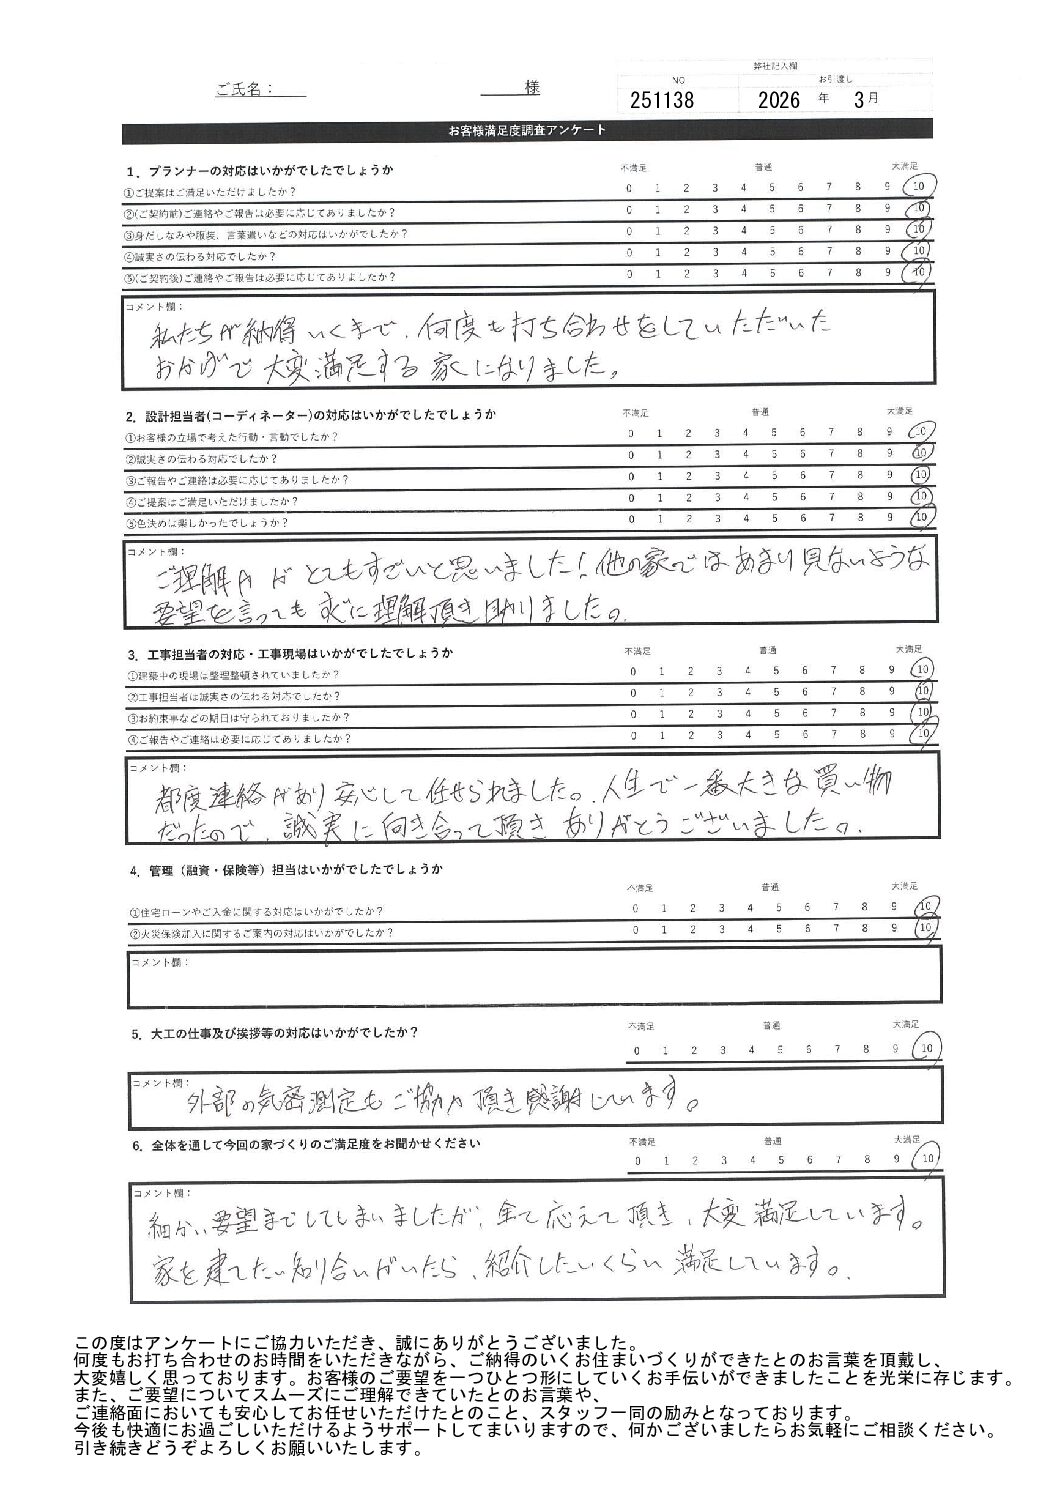 ご氏名： 様
弊社記入欄
NO お引渡し
251138 2026 年 3 月
お客様満足度調査アンケート
1．プランナーの対応はいかがでしたでしょうか 不満足 普通 大満足
①ご提案はご満足いただけましたか？ 0 1 2 3 4 5 6 7 8 9 10
②(ご契約前)ご連絡やご報告は必要に応じてありましたか？ 0 1 2 3 4 5 6 7 8 9 10
③身だしなみや服装、言葉遣いなどの対応はいかがでしたか？ 0 1 2 3 4 5 6 7 8 9 10
④誠実さの伝わる対応でしたか？ 0 1 2 3 4 5 6 7 8 9 10
⑤(ご契約後)ご連絡やご報告は必要に応じてありましたか？ 0 1 2 3 4 5 6 7 8 9 10
コメント欄：
私たちが納得いくまで、何度も打ち合わせをしていただいた
おかげで大変満足する家になりました。
2．設計担当者(コーディネーター)の対応はいかがでしたでしょうか 不満足 普通 大満足
①お客様の立場で考えた行動・言動でしたか？ 0 1 2 3 4 5 6 7 8 9 10
②誠実さの伝わる対応でしたか？ 0 1 2 3 4 5 6 7 8 9 10
③ご報告やご連絡は必要に応じてありましたか？ 0 1 2 3 4 5 6 7 8 9 10
④ご提案はご満足いただけましたか？ 0 1 2 3 4 5 6 7 8 9 10
⑤色決めは楽しかったでしょうか？ 0 1 2 3 4 5 6 7 8 9 10
コメント欄：
ご理解力がとてもすごいと思いました！他の家ではあまり見ないような
要望を言ってもすぐに理解頂き助かりました。
3．工事担当者の対応・工事現場はいかがでしたでしょうか 不満足 普通 大満足
①建築中の現場は整理整頓されていましたか？ 0 1 2 3 4 5 6 7 8 9 10
②工事担当者は誠実さの伝わる対応でしたか？ 0 1 2 3 4 5 6 7 8 9 10
③お約束事などの期日は守られておりましたか？ 0 1 2 3 4 5 6 7 8 9 10
④ご報告やご連絡は必要に応じてありましたか？ 0 1 2 3 4 5 6 7 8 9 10
コメント欄：
都度連絡があり安心して任せられました。人生で一番大きな買い物
だったので、誠実に向き合って頂きありがとうございました。
4．管理（融資・保険等）担当はいかがでしたでしょうか
不満足 普通 大満足
①住宅ローンやご入金に関する対応はいかがでしたか？ 0 1 2 3 4 5 6 7 8 9 10
②火災保険加入に関するご案内の対応はいかがでしたか？ 0 1 2 3 4 5 6 7 8 9 10
コメント欄：
5．大工の仕事及び挨拶等の対応はいかがでしたか？ 不満足 普通 大満足
0 1 2 3 4 5 6 7 8 9 10
コメント欄：
外部の気密測定もご協力頂き感謝しています。
6．全体を通して今回の家づくりのご満足度をお聞かせください 不満足 普通 大満足
0 1 2 3 4 5 6 7 8 9 10
コメント欄：
細かい要望までしてしまいましたが、全て応えて頂き、大変満足しています。
家を建てたい知り合いがいたら、紹介したいくらい満足しています。
この度はアンケートにご協力いただき、誠にありがとうございました。
何度もお打ち合わせのお時間をいただきながら、ご納得のいくお住まいづくりができたとのお言葉を頂戴し、
大変嬉しく思っております。お客様のご要望を一つひとつ形にしていくお手伝いができましたことを光栄に存じます。
また、ご要望についてスムーズにご理解できていたとのお言葉や、
ご連絡面においても安心してお任せいただけたとのこと、スタッフ一同の励みとなっております。
今後も快適にお過ごしいただけるようサポートしてまいりますので、何かございましたらお気軽にご相談ください。
引き続きどうぞよろしくお願いいたします。